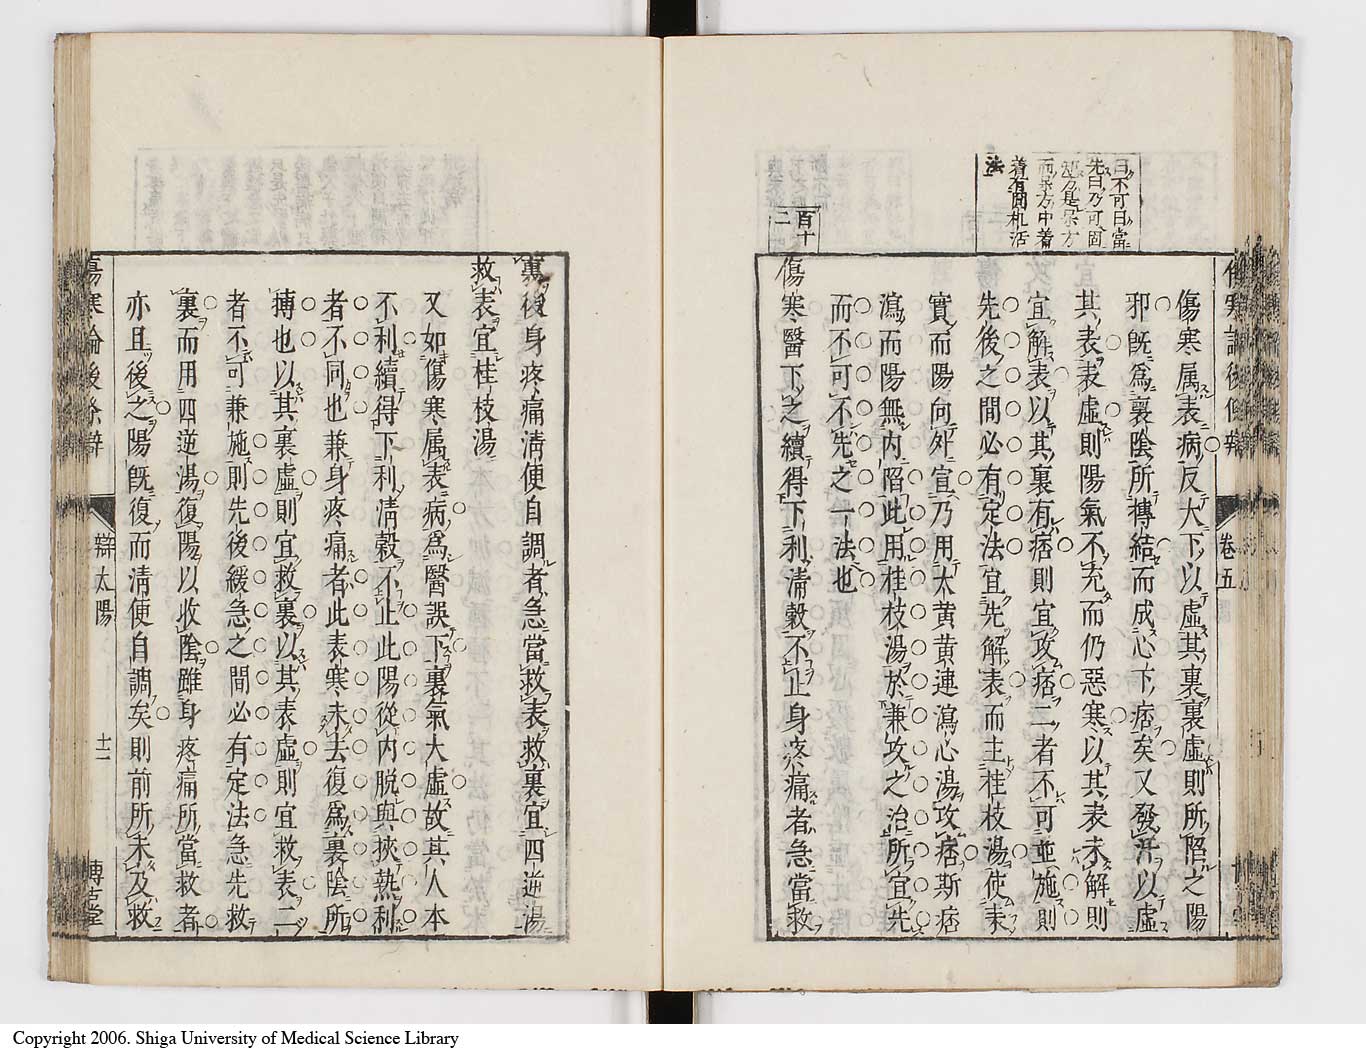 曰不可曰當
先曰乃可固
着有間机活
法
百十
二
傷寒論後條辨
卷五
傷寒属表病反大下以虛其裏裏虛則所陷之陽
邪旣爲裏陰所摶結而成心下痞矣又發汗以虛
其表表虛則陽氣不充而仍惡寒以其表未解則
宜解表以其裏有痞則宜攻痞二者不可並施則
先後之間必有定法宜先解表而主桂枝湯使表
實而陽向外宜乃用大黃黃連瀉心湯攻痞斯痞
瀉而陽無內陷此用桂枝湯於兼攻之治所宜先
而不可不先之一法也
傷寒醫下之續得下利淸穀不止身疼痛者急當救
裏後身疼痛淸便自調者急當救表救裏宜四逆湯
救表宜桂枝湯
又如傷寒属表病爲醫誤下裏氣大虛故其人本
不利續得下利淸穀不止此陽從內脫與挾熱利
者不同也兼身疼痛者此表寒未去復爲裏陰所
摶也以其裏虛則宜救裏以其表虛則宜救表二
者不可兼施則先後緩急之間必有定法急先救
裏而用四逆湯復陽以收陰雖身疼痛所當救者
亦且後之陽旣復而淸便自調矣則前所未及救
傷寒論後條辨
辯太陽
十二
博古堂
Copyright 2006. Shiga University of Medical Science Library